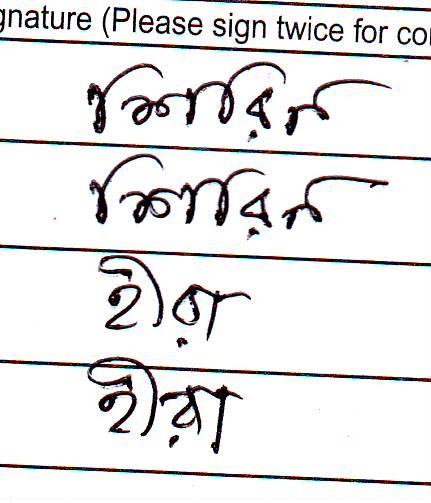 gnature (Please sign twice for con
শিরিন
শিরিন
হীরা
হীরা